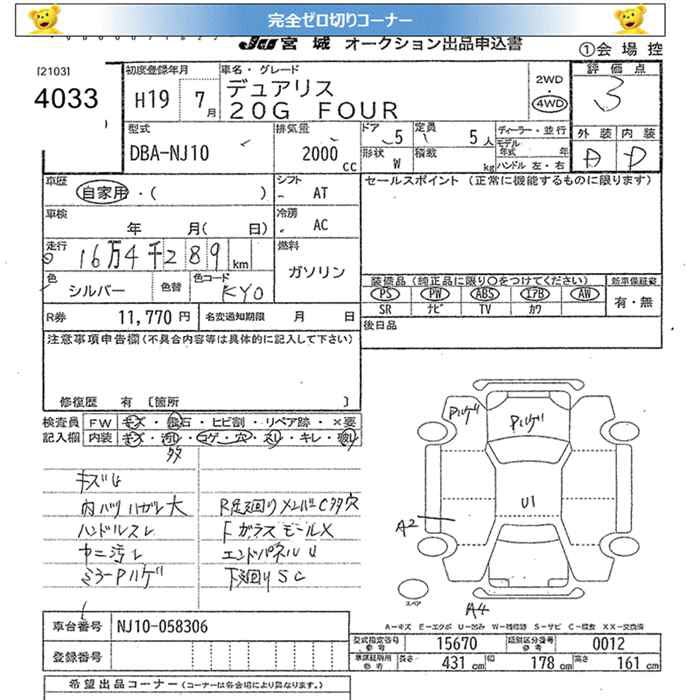 完全ゼロ切りコーナー
JCU 宮城 オークション出品申込書
①会場控
[2103]
4033
初度登録年月
H19 7月
車名・グレード
デュアリス
20G FOUR
2WD
4WD
評価点
3
外装 内装
A D
型式
DBA-NJ10
排気量
2000cc
ドア 5
定員 5人
形状 W
積載 kg
ディーラー・並行
モデル年式 年
ハンドル 左・右
車歴
自家用・( )
シフト
AT
セールスポイント (正常に機能するものに限ります)
車検
年 月( 日)
冷房
AC
走行
16万4千289km
燃料
ガソリン
色
シルバー
色替
色コード
KY0
装備品(純正品に限り○をつけてください)
新車保証書
PS PW ABS エアB AW
SR ナビ TV カワ
有・無
R券 11,770円
名変通知期限 月 日
後日品
注意事項申告欄(不具合内容等は具体的に記入して下さい)
修復歴 有 [箇所 ]
検査員 FW キズ・飛石・ヒビ割・リペア跡・×要
記入欄 内装 キズ・汚れ・コゲ・穴・スレ・キレ・破れ
多
キズU
内バリハガレ大
ハンドルスレ
ミラーPハゲ
R足廻りメンバーC多穴
FガラスモールX
エンドパネルU
下廻りSC
Pハゲ
Pハゲ
U1
A2
A4
スペア
A-キズ E-エクボ U-凹み W-補修跡 S-サビ C-腐食 XX-交換済
車台番号 NJ10-058306
登録番号
型式指定番号 15670
類別区分番号 0012
車検証記載用 長さ 431cm 幅 178cm 高さ 161cm
希望出品コーナー(コーナーは各会場により異なります。)